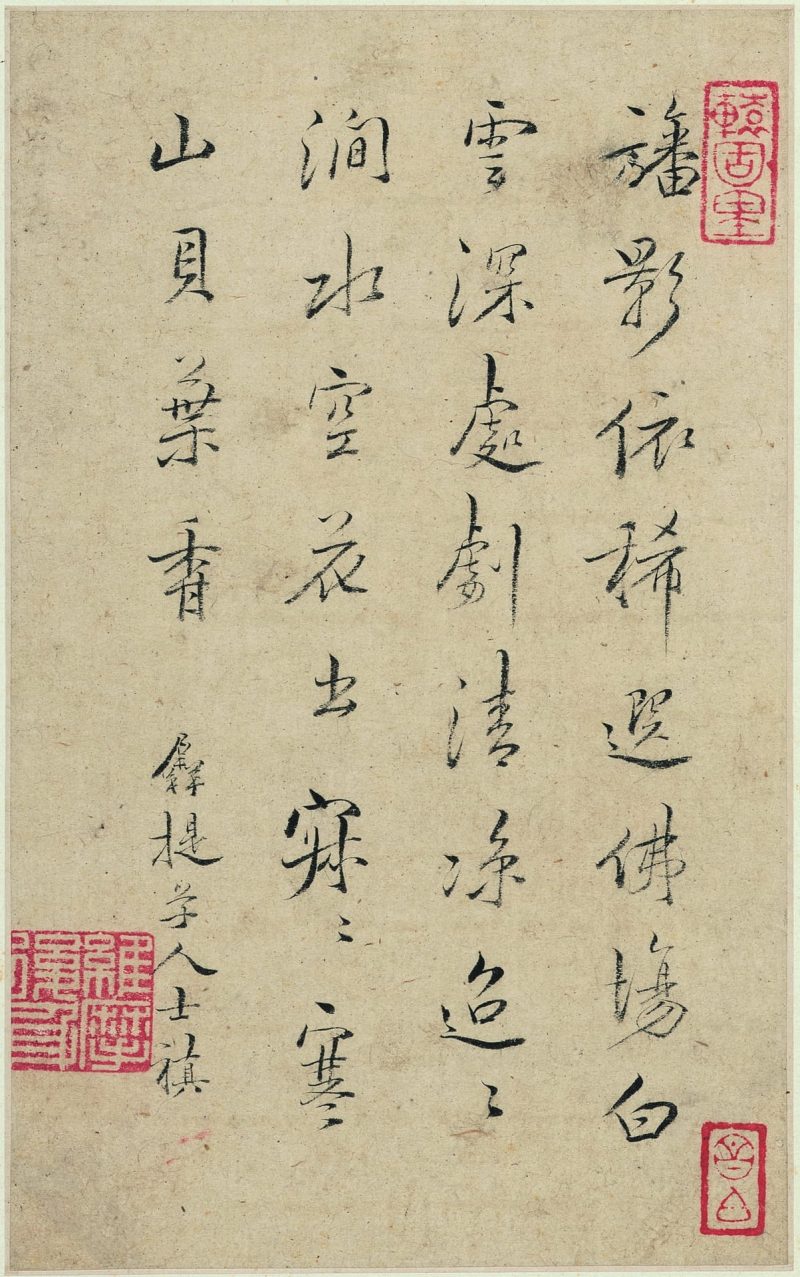 旛影依稀選佛場白
雲深處劇清涼迢〻
澗水空花出寂〻寒
山貝葉香
羼提學人士禛